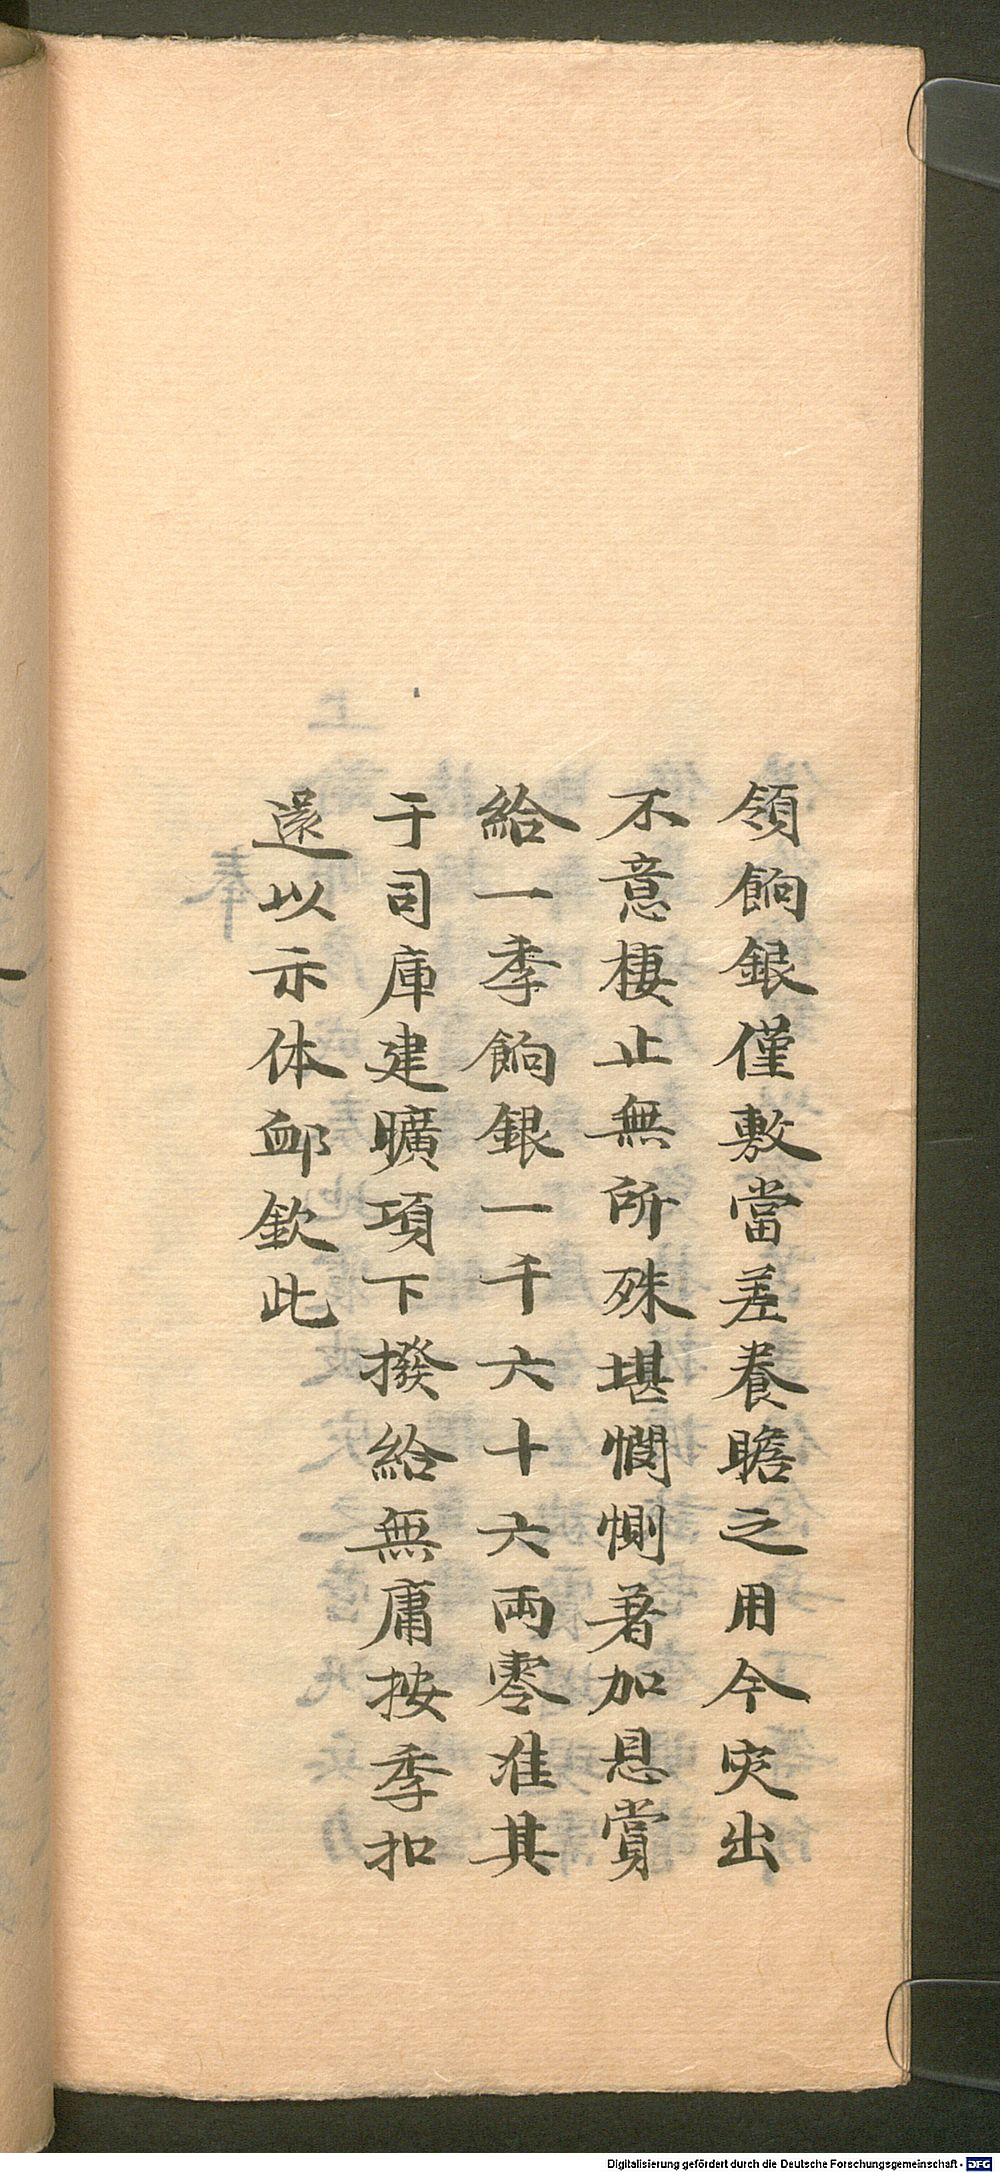 領餉銀僅敷當差養贍之用今灾出
不意棲止無所殊堪憫惻著加恩賞
給一季餉銀一千六十六両零准其
于司庫建曠項下撥給無庸按季扣
還以示体邮欽此
Digitalisierung gefördert durch die Deutsche Forschungsgemeinschaft - DFG